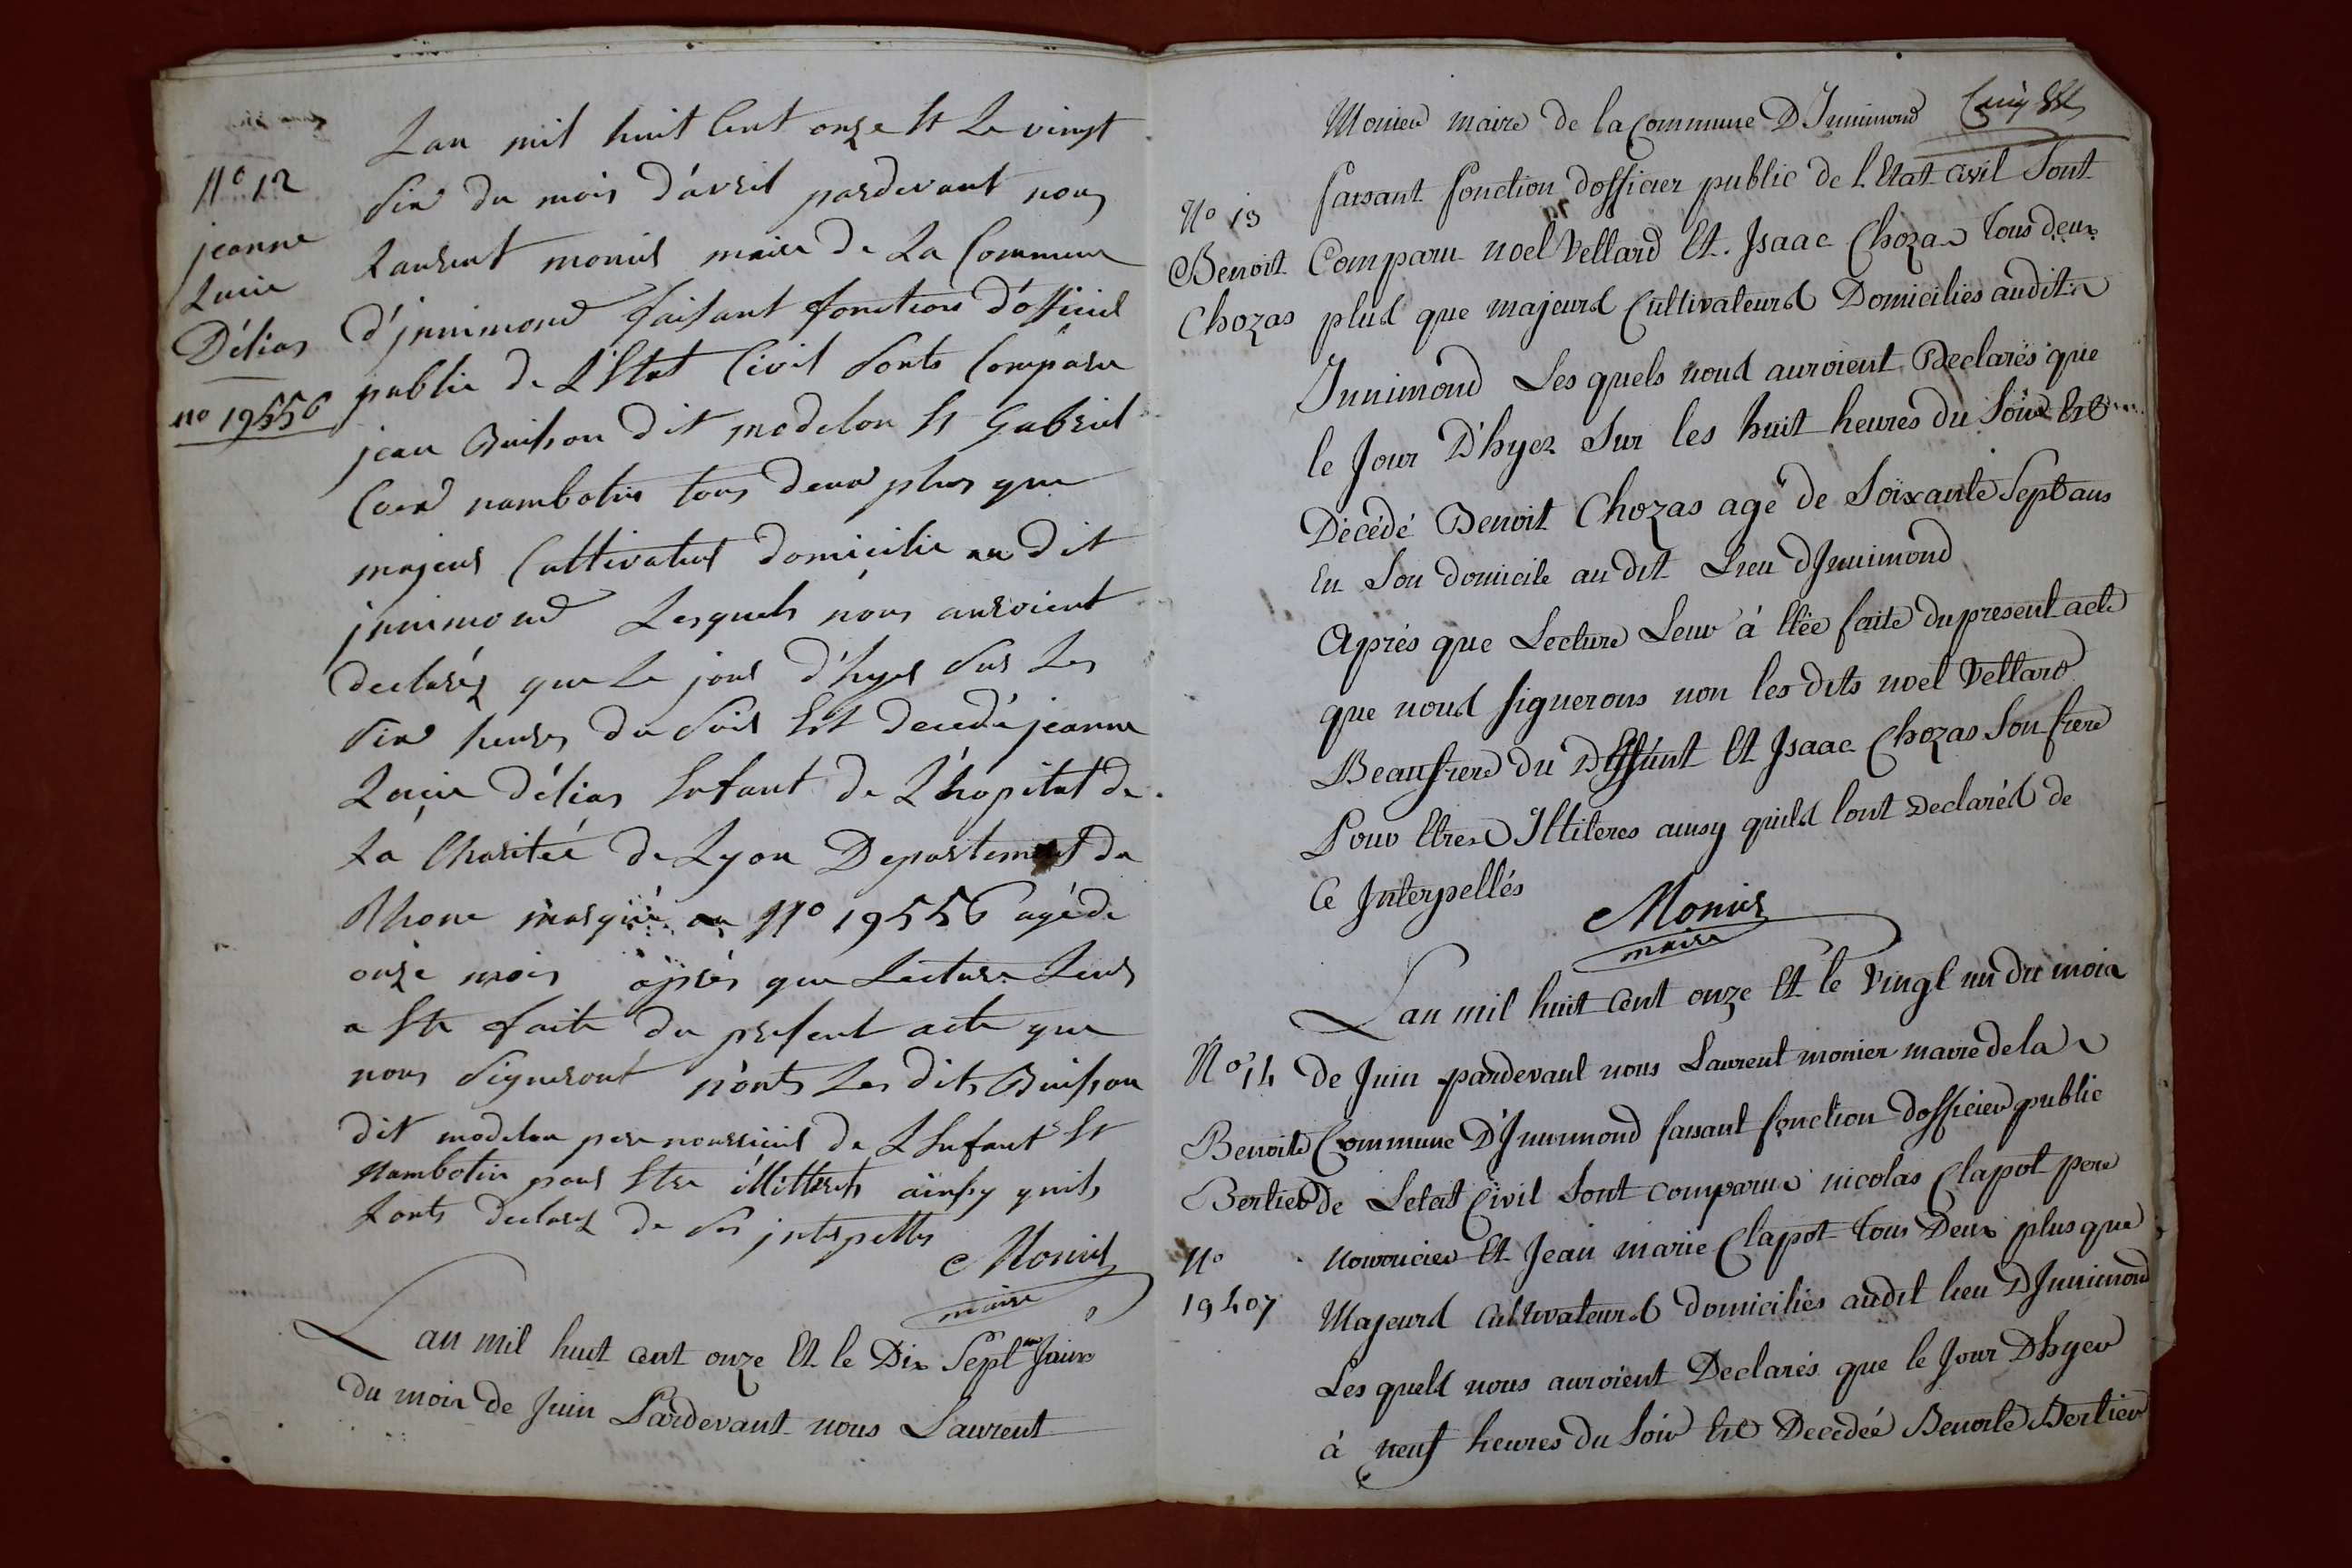 N° 12
jeanne
Lucie
Délias
n° 19556
Lan mil huit Cent onze Et Le vingt
Six du mois d'avril pardevant nous
Laurent monier maire de La Commune
d'jnnimond faisant fonction d'officier
public de L'Etat Civil Sonts Comparu
jean Buisson dit modelon Et Gabriel
nambotin tous deux plus que
majeur Cultivateur domicilie au dit
jnnimond Lesquels nous auroient
declarés que Le jour d'hyer Sur Les
Six heures du Soir Est decedé jeanne
Lucie délias Enfant de L'hopital de
La Charitée de Lyon Departement du
Rhone marquée au N° 19556 agé de
onze mois après que Lecture Leur
a Ete faite du present acte que
nous Signeront nonts Les dits Buisson
dit modelon pere nourricier de LEnfant Et
Nambotin pour Etre illitterés ainsy quils
Lonts declarez de Ses jnterpelles
Monier
maire
Lan mil huit cent onze Et le Dix Sept me Jour
du mois de Juin Pardevant nous Laurent
Monier maire de la Commune D'Innimond
faisant fonction dofficier public de l'Etat civil Sont
N° 13
Benoit
Chozas
Comparu noel Vettard Et Isaac Chozas tous deux
plus que majeurs Cultivateurs Domiciliés audit
Innimond Les quels nous auroient Declarés que
le Jour D'hyer Sur les huit heures du Soir Est
Décédé Benoit Chozas agé de Soixante Sept ans
En Son domicile au dit Lieu dInnimond
Après que Lecture Leur à Etée faite du present acte
que nous signerons non les dits noel Vettard
Beaufrere du Deffunt Et Isaac Chozas Son frere
Pour Etres Illiteres ainsy quils lont Declarés de
Ce Interpellés
Monier
maire
Lan mil huit cent onze Et le Vingt un du mois
N° 14
Benoite
Bertier
N°
19407
de Juin pardevant nous Laurent monier maire de la
Commune D'Innimond faisant fonction dofficier public
de Letat Civil Sont comparus nicolas Clapot pere
nourricier Et Jean marie Clapot tous Deux plus que
Majeurs Cultivateurs domiciliés audit lieu DInnimond
Les quels nous auroient Declarés que le Jour Dhyer
à neuf heures du Soir Est Decedée Benoite Bertier